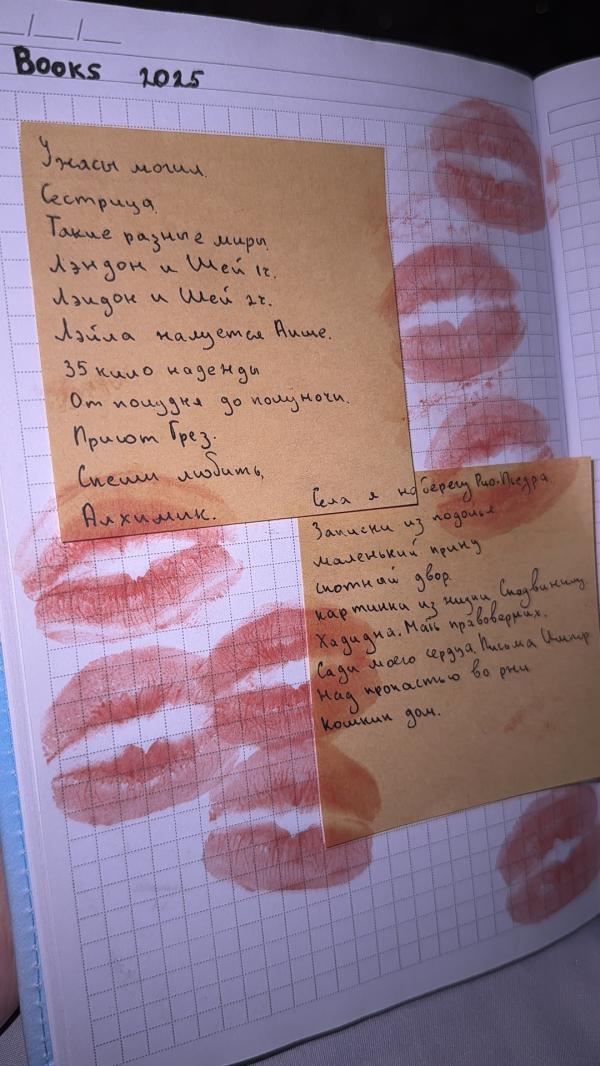 Books 2025
Ужасы могил.
Сестрица.
Такие разные миры.
Лэндон и Шей 1ч.
Лэндон и Шей 2ч.
Лэйла жалуется Аише.
35 кило надежды
От полудня до полуночи.
Приют Грез.
Спеши любить,
Алхимик.
Села я на берегу Рио-Пьедра
Записки из подолья
маленький принц
скотный двор
картинки из жизни Сподвижниц.
Хадиджа. Мать правоверных.
Сады моего сердца. Письма
Над пропастью во ржи
Кошкин дом.